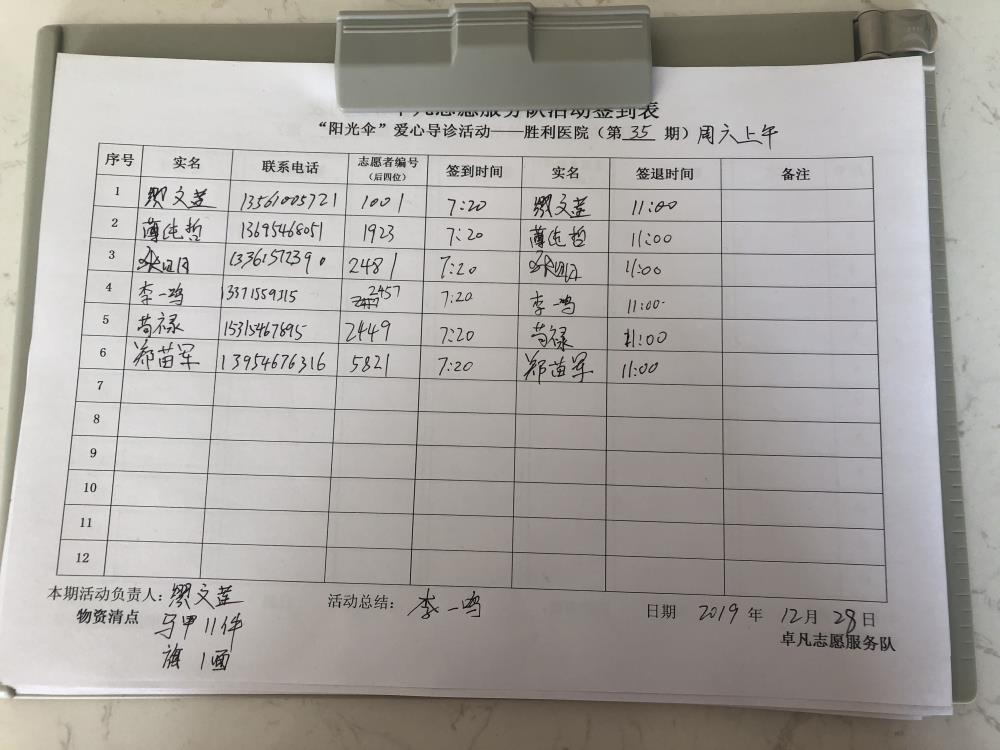 卓凡志愿服务队活动签到表
“阳光伞”爱心导诊活动——胜利医院(第 35 期)周六上午
序号 实名 联系电话 志愿者编号(后四位) 签到时间 实名 签退时间 备注
1 缪文莲 13561005721 1001 7:20 缪文莲 11:00
2 薄纯哲 13695468051 1923 7:20 薄纯哲 11:00
3 13361572390 2481 7:20 11:00
4 李一鸣 13371559315 2457 7:20 李一鸣 11:00
5 苟禄 15315467895 2449 7:20 苟禄 11:00
6 郑苗军 13954676316 5821 7:20 郑苗军 11:00
7
8
9
10
11
12
本期活动负责人:缪文莲 活动总结:李一鸣 日期 2019 年 12月 28日
物资清点 马甲11件 卓凡志愿服务队
旗 1面